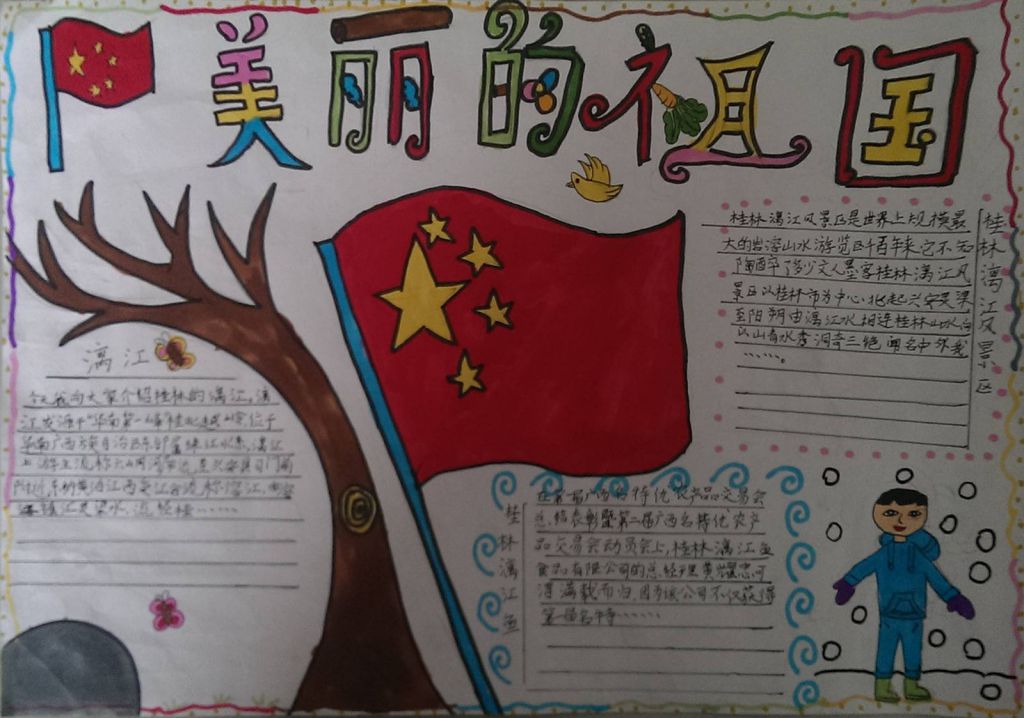 美丽的祖国
桂林漓江风景区是世界上规模最
大的岩溶山水游览区千百年来它不知
陶醉了多少文人墨客桂林漓江风
景区以桂林市为中心北起兴安灵渠
至阳朔由漓江水相连桂林山水向
以山青水秀洞奇三绝闻名中外我
……
桂林漓江风景区
漓江
今天我向大家介绍桂林的漓江,漓
江发源于"华南第一峰"桂北越
位于
华南广西壮族自治区东部属珠江水系,漓江
上游主流称六洞河
江
在首届广西名特优农产品交易会
总结表彰暨第二届广西名特优农产
品交易会动员会上,桂林漓江鱼
食品有限公司的总经理黄耀忠可
谓满载而归,因为该公司不仅获得
第一届名特……
桂林漓江鱼